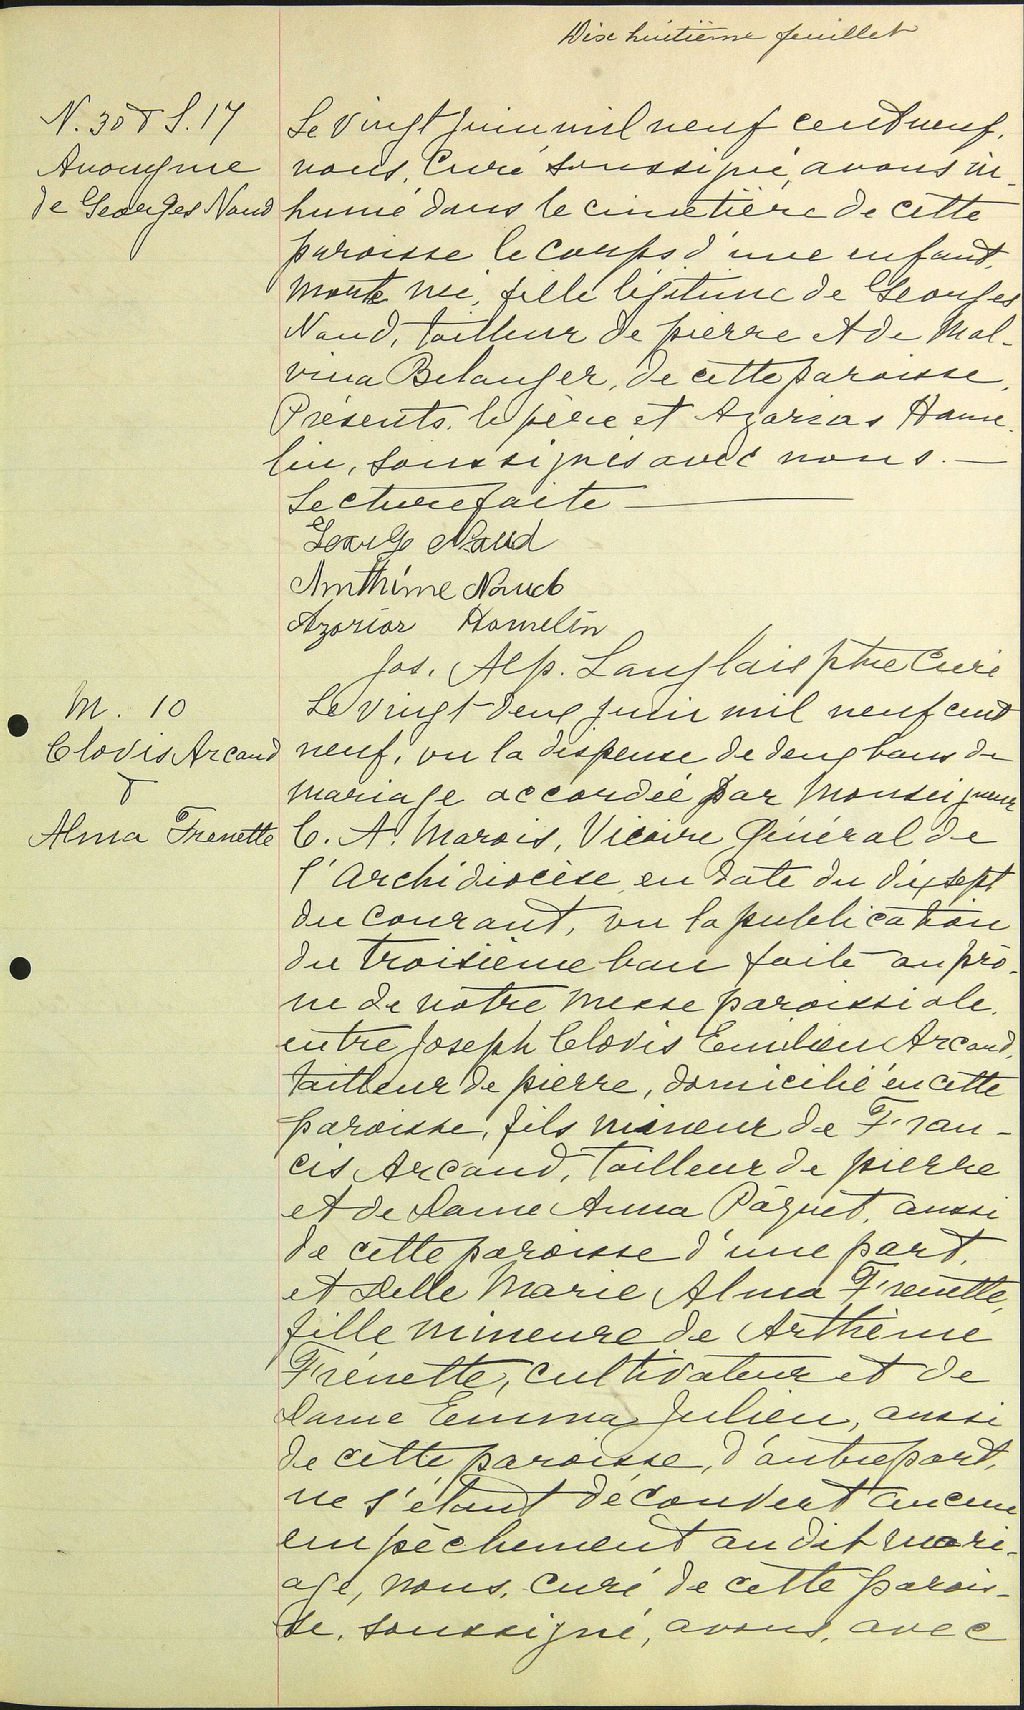 Dix huitième feuillet
N. 30 & S. 17
Anonyme
de Georges Naud
Le vingt juin mil neuf cent neuf,
nous, Curé soussigné, avons in-
humé dans le cimetière de cette
paroisse le corps d'une enfant,
morte née, fille légitime de Georges
Naud, tailleur de pierre et de Mal-
vina Belanger, de cette paroisse.
Présents, le père et Azarias Hame-
lin, soussignés avec nous. —
Lecture faite —
George Naud
Anthime Naud
Azarias Hamelin
Jos. Alp. Langlais ptre Curé
M. 10
Clovis Arcand
&
Alma Frenette
Le vingt-deux juin mil neuf cent
neuf, vu la dispense de deux bans de
mariage accordée par Monseigneur
C. A. Marois, Vicaire Général de
l'Archidiocèse, en date du dix sept
du courant, vu la publication
du troisième ban faite au prô-
ne de notre messe paroissiale,
entre Joseph Clovis Emilien Arcand,
tailleur de pierre, domicilié en cette
paroisse, fils mineur de Fran-
cis Arcand, tailleur de pierre
et de Dame Anna Pâquet, aussi
de cette paroisse d'une part,
et Delle Marie Alma Frenette,
fille mineure de Arthème
Frénette, cultivateur et de
Dame Emma Julien, aussi
de cette paroisse, d'autre part,
ne s'étant découvert aucun
empêchement au dit mari-
age, nous, curé de cette parois-
se, soussigné, avons, avec